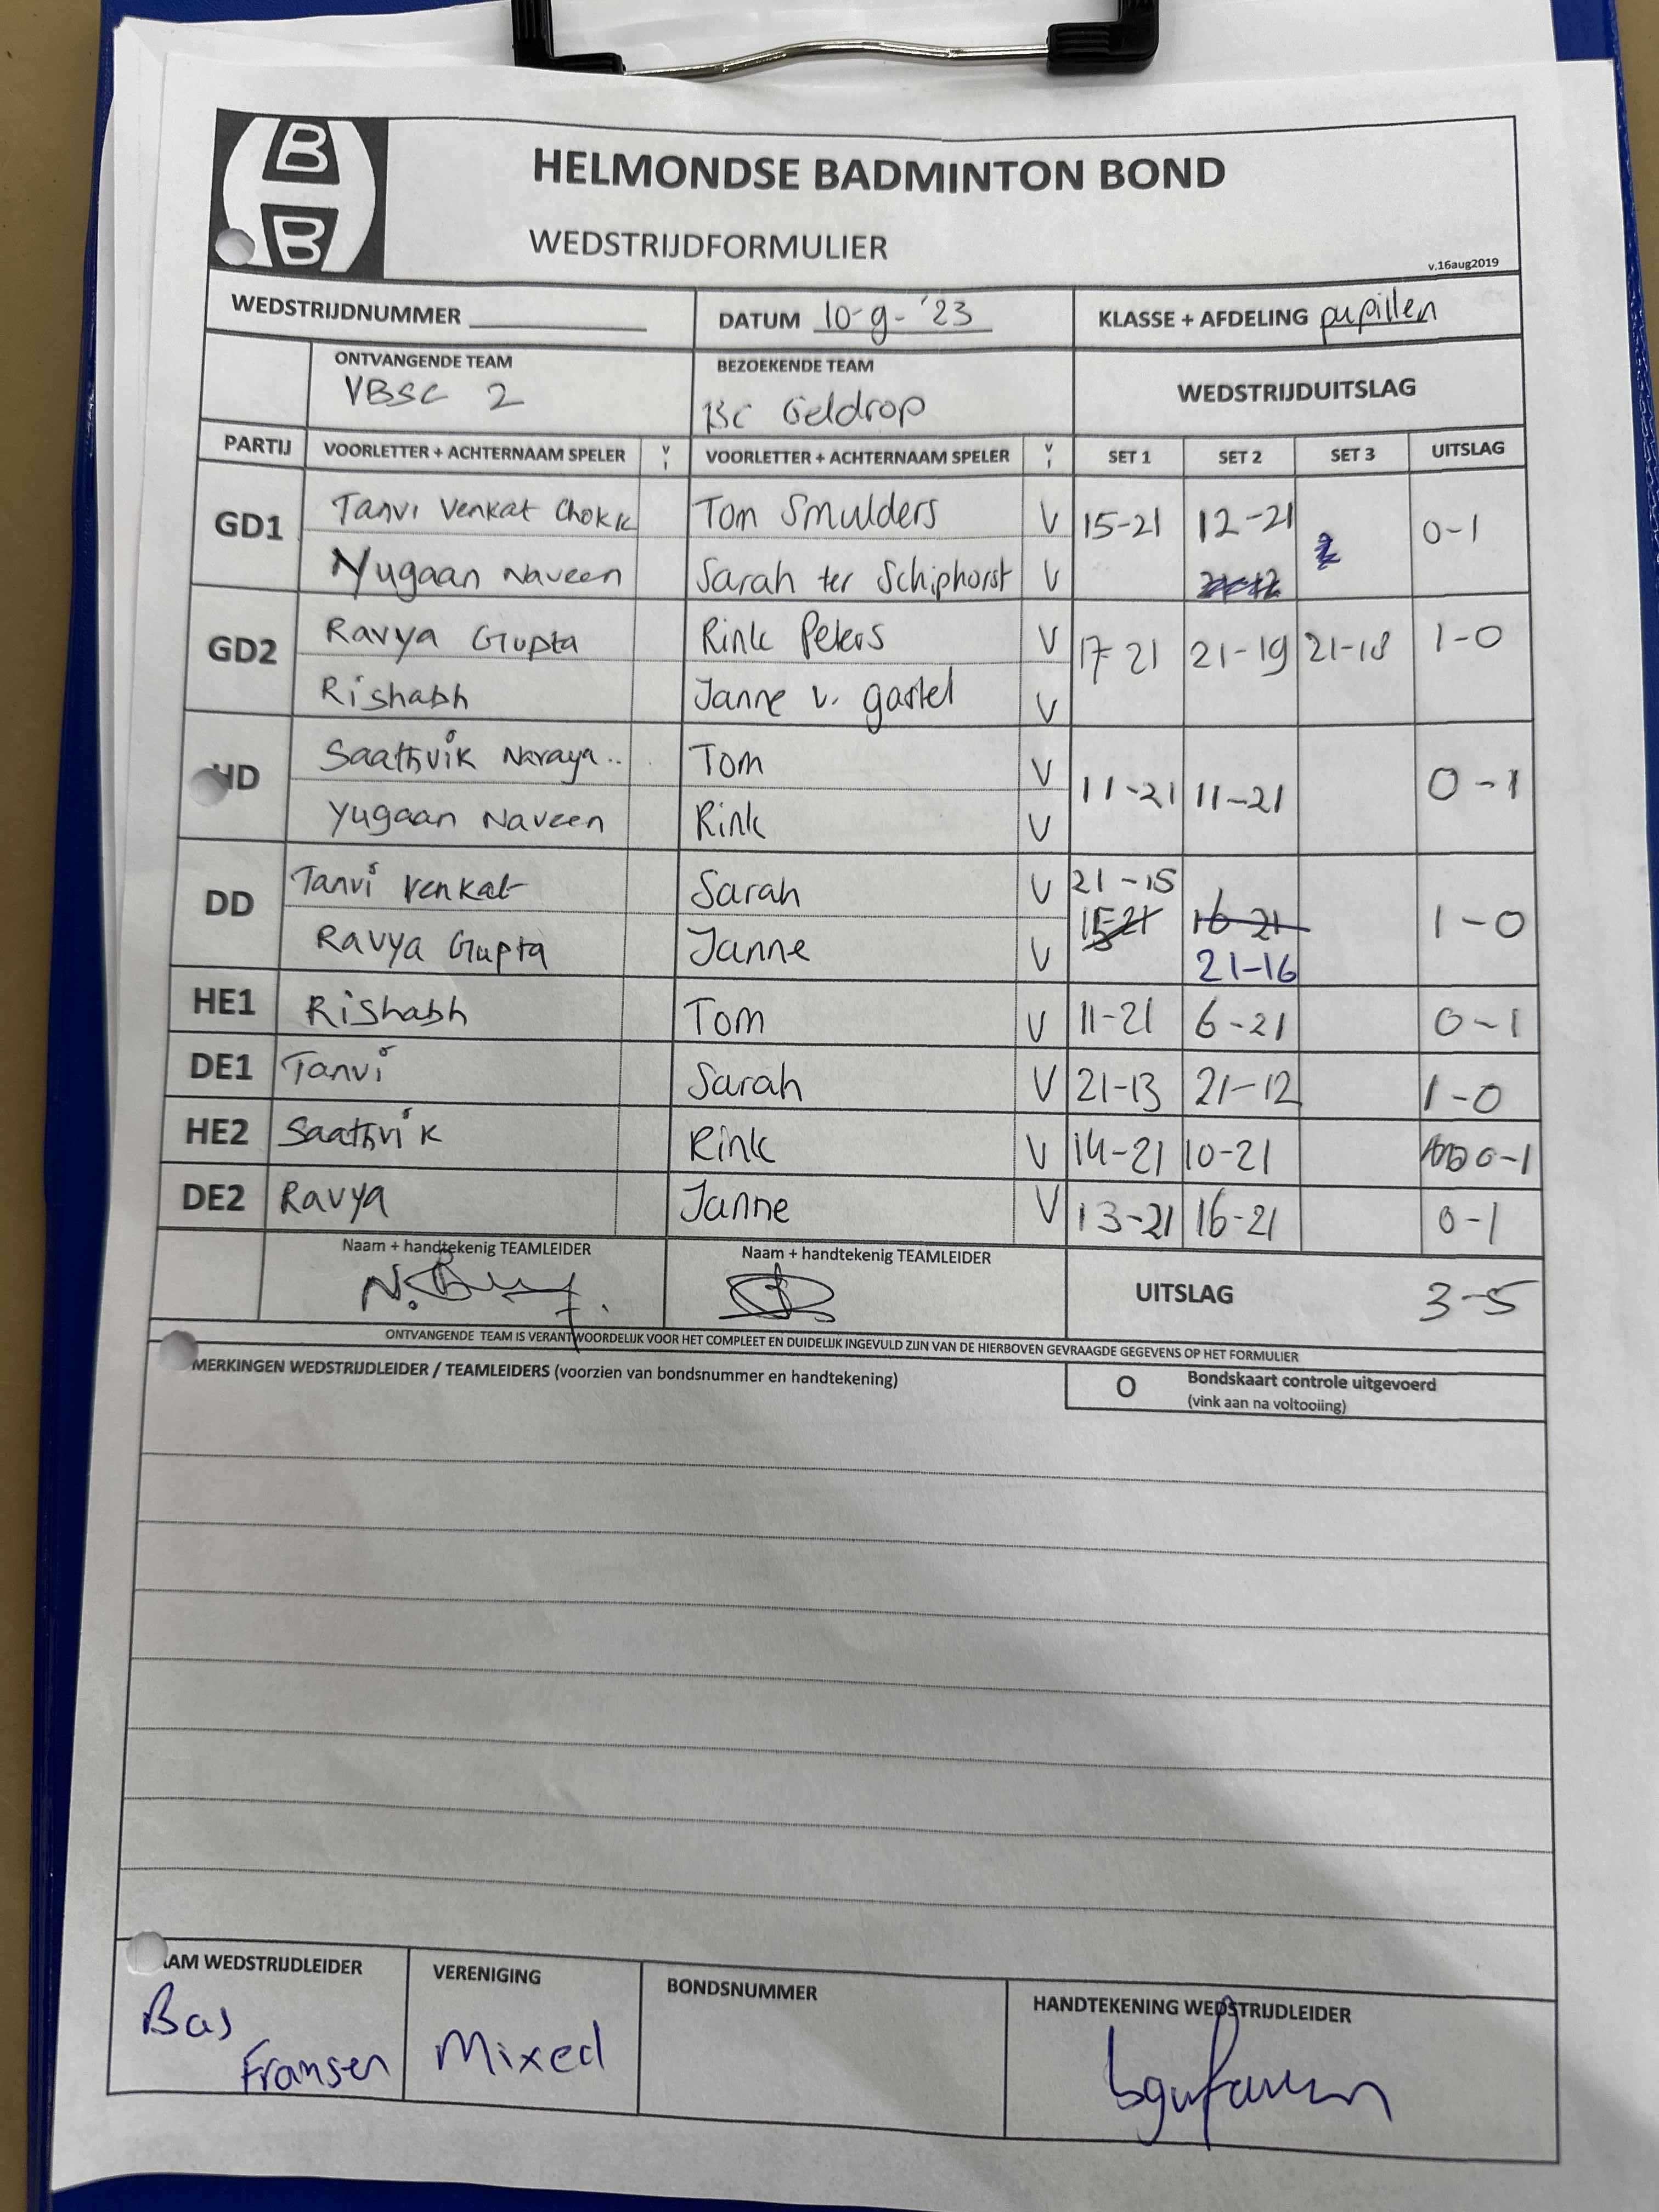 B
B
HELMONDSE BADMINTON BOND
WEDSTRIJDFORMULIER
v.16aug2019
WEDSTRIJDNUMMER
DATUM 10-9-'23
KLASSE + AFDELING pupillen
ONTVANGENDE TEAM
VBSC 2
BEZOEKENDE TEAM
BC Geldrop
WEDSTRIJDUITSLAG
PARTIJ VOORLETTER + ACHTERNAAM SPELER V I VOORLETTER + ACHTERNAAM SPELER V I SET 1 SET 2 SET 3 UITSLAG
GD1 Tanvi Venkat Chokk Tom Smulders V 15-21 12-21 0-1
Yugaan Naveen Sarah ter Schiphorst V
GD2 Ravya Gupta Rink Peters V 17-21 21-19 21-18 1-0
Rishabh Janne v. gastel V
HD Saathvik Naraya.. Tom V 11-21 11-21 0-1
Yugaan Naveen Rink V
DD Tanvi Venkat Sarah V 21-15 16-21 1-0
Ravya Gupta Janne V 15-21 21-16
HE1 Rishabh Tom V 11-21 6-21 0-1
DE1 Tanvi Sarah V 21-13 21-12 1-0
HE2 Saathvik Rink V 14-21 10-21 0-1
DE2 Ravya Janne V 13-21 16-21 0-1
Naam + handtekenig TEAMLEIDER
Naam + handtekenig TEAMLEIDER
UITSLAG 3-5
ONTVANGENDE TEAM IS VERANTWOORDELIJK VOOR HET COMPLEET EN DUIDELIJK INGEVULD ZIJN VAN DE HIERBOVEN GEVRAAGDE GEGEVENS OP HET FORMULIER
MERKINGEN WEDSTRIJDLEIDER / TEAMLEIDERS (voorzien van bondsnummer en handtekening)
O Bondskaart controle uitgevoerd
(vink aan na voltooiing)
AM WEDSTRIJDLEIDER
Bas
Fransen
VERENIGING
Mixed
BONDSNUMMER
HANDTEKENING WEDSTRIJDLEIDER